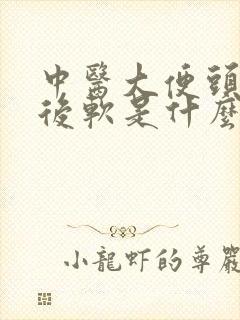 中醫大便頭
後軟是什麼
小龍虾的尊嚴